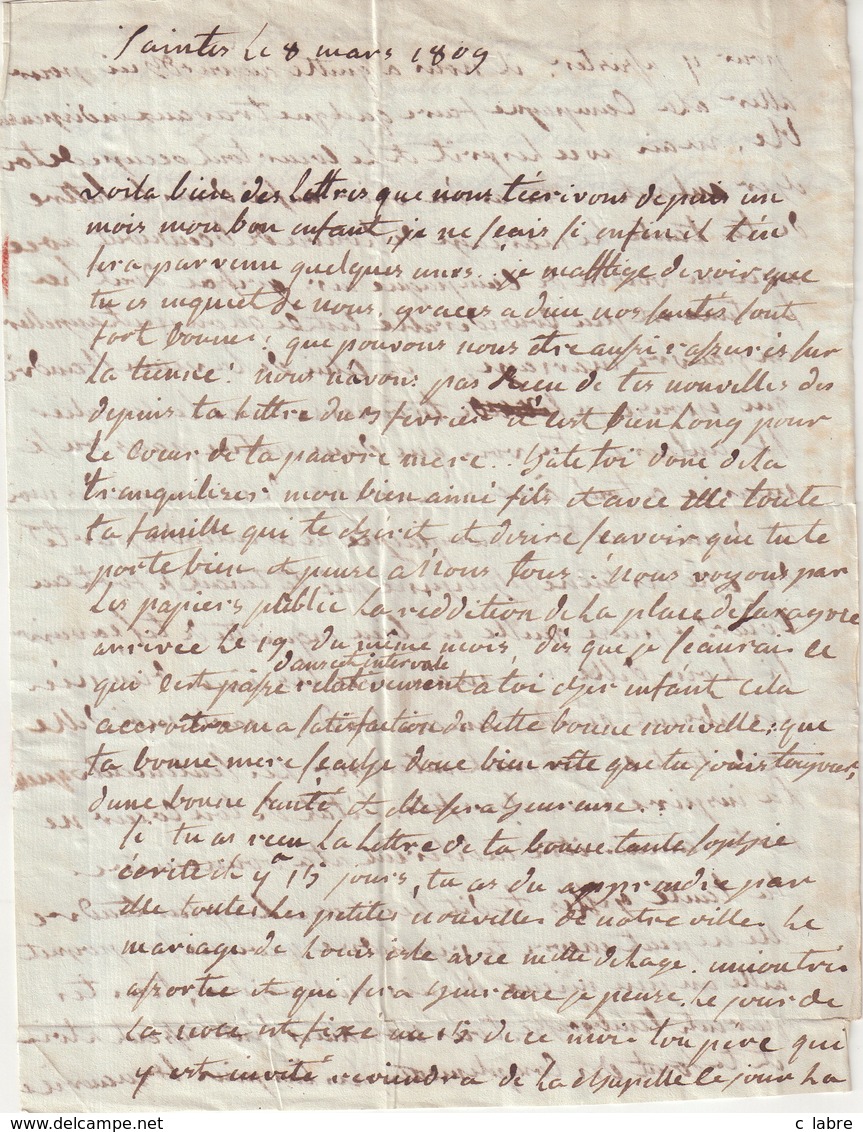 Saintes le 8 mars 1809
voila bien des lettres que nous t'écrivons depuis un
mois mon bon enfant, je ne scais si enfin il t'en
sera parvenu quelques unes.. je m'afflige de voir que
tu es inquiet de nous, graces a dieu nos santés sont
fort bonnes; que pouvons nous être aussi rassurés sur
la tienne! nous n'avons pas recu de tes nouvelles des
depuis ta lettre du 5 fevrier c'est bien long pour
le coeur de ta pauvre mere.. hâte toi donc de la
tranquiliser mon bien aimé fils et avec elle toute
ta famille qui te chérit et desire scavoir que tu te
porte bien et pense a nous tous nous voyons par
les papiers public la reddition de la place de Saragosse
arrivée le 19 du même mois, dès que je scaurai ce
dans cet intervale
qui c'est passe relativement a toi cher enfant cela
accroitra ma satisfaction de cette bonne nouvelle: que
ta bonne mere scache donc bien vîte que tu jouis toujours
d'une bonne santé et elle sera heureuse.
si tu as recu la lettre de ta bonne tante sophie
écrite il y a 15 jours, tu as du apprendre par
elle toutes les petites nouvelles de notre ville. le
mariage de Louis isle avec melle delage. union très
assortie et qui sera heureuse je pense. le jour de
la noce est fixé au 15 de ce mois ton pere qui
y est invité reviendra de la chapelle ce jour la
c labre